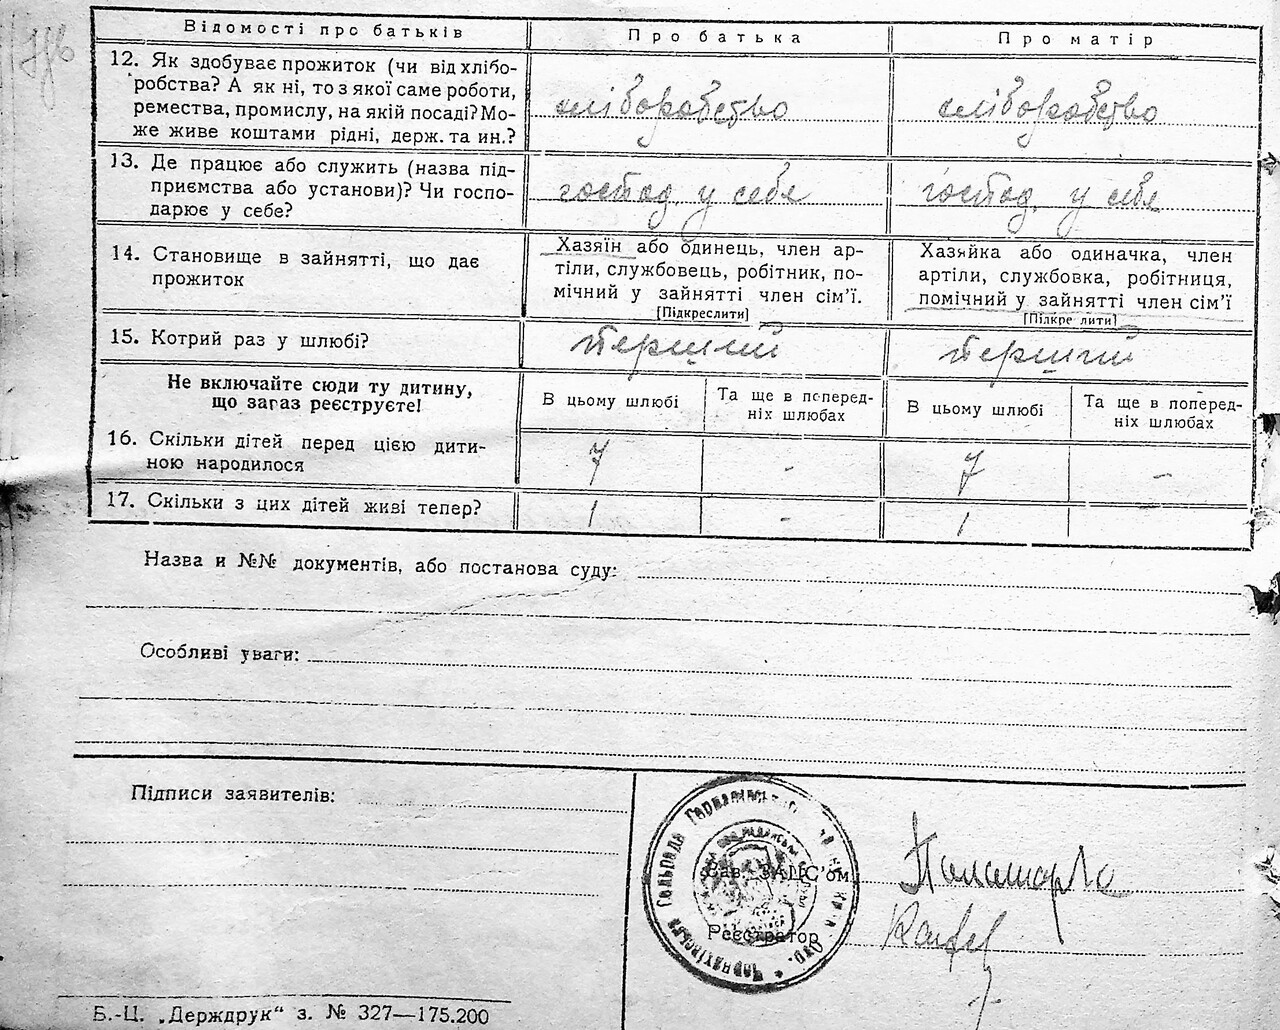 Відомості про батьків
Про батька
Про матір
12. Як здобуває прожиток (чи від хлібо-
робства? А як ні, то з якої саме роботи,
ремества, промислу, на якій посаді? Мо-
же живе коштами рідні, держ. та ин.?
хліборобство
хліборобство
13. Де працює або служить (назва під-
приємства або установи)? Чи госпо-
дарює у себе?
господ. у себе
господ. у себе
14. Становище в зайнятті, що дає
прожиток
Хазяїн або одинець, член ар-
тіли, службовець, робітник, по-
мічний у зайнятті член сім’ї.
[Підкреслити]
Хазяйка або одиначка, член
артіли, службовка, робітниця,
помічний у зайнятті член сім’ї
[Підкре лити]
15. Котрий раз у шлюбі?
перший
перший
Не включайте сюди ту дитину,
що загаз реєструєте!
В цьому шлюбі
Та ще в поперед-
ніх шлюбах
В цьому шлюбі
Та ще в поперед-
ніх шлюбах
16. Скільки дітей перед цією дити-
ною народилося
7
-
7
-
17. Скільки з цих дітей живі тепер?
1
-
1
-
Назва и №№ документів, або постанова суду:
Особливі уваги:
Підписи заявителів:
Зав. ЗАПС’ом
Реєстратор
Сільрада
Б.-Ц. „Держдрук“ з. № 327—175.200